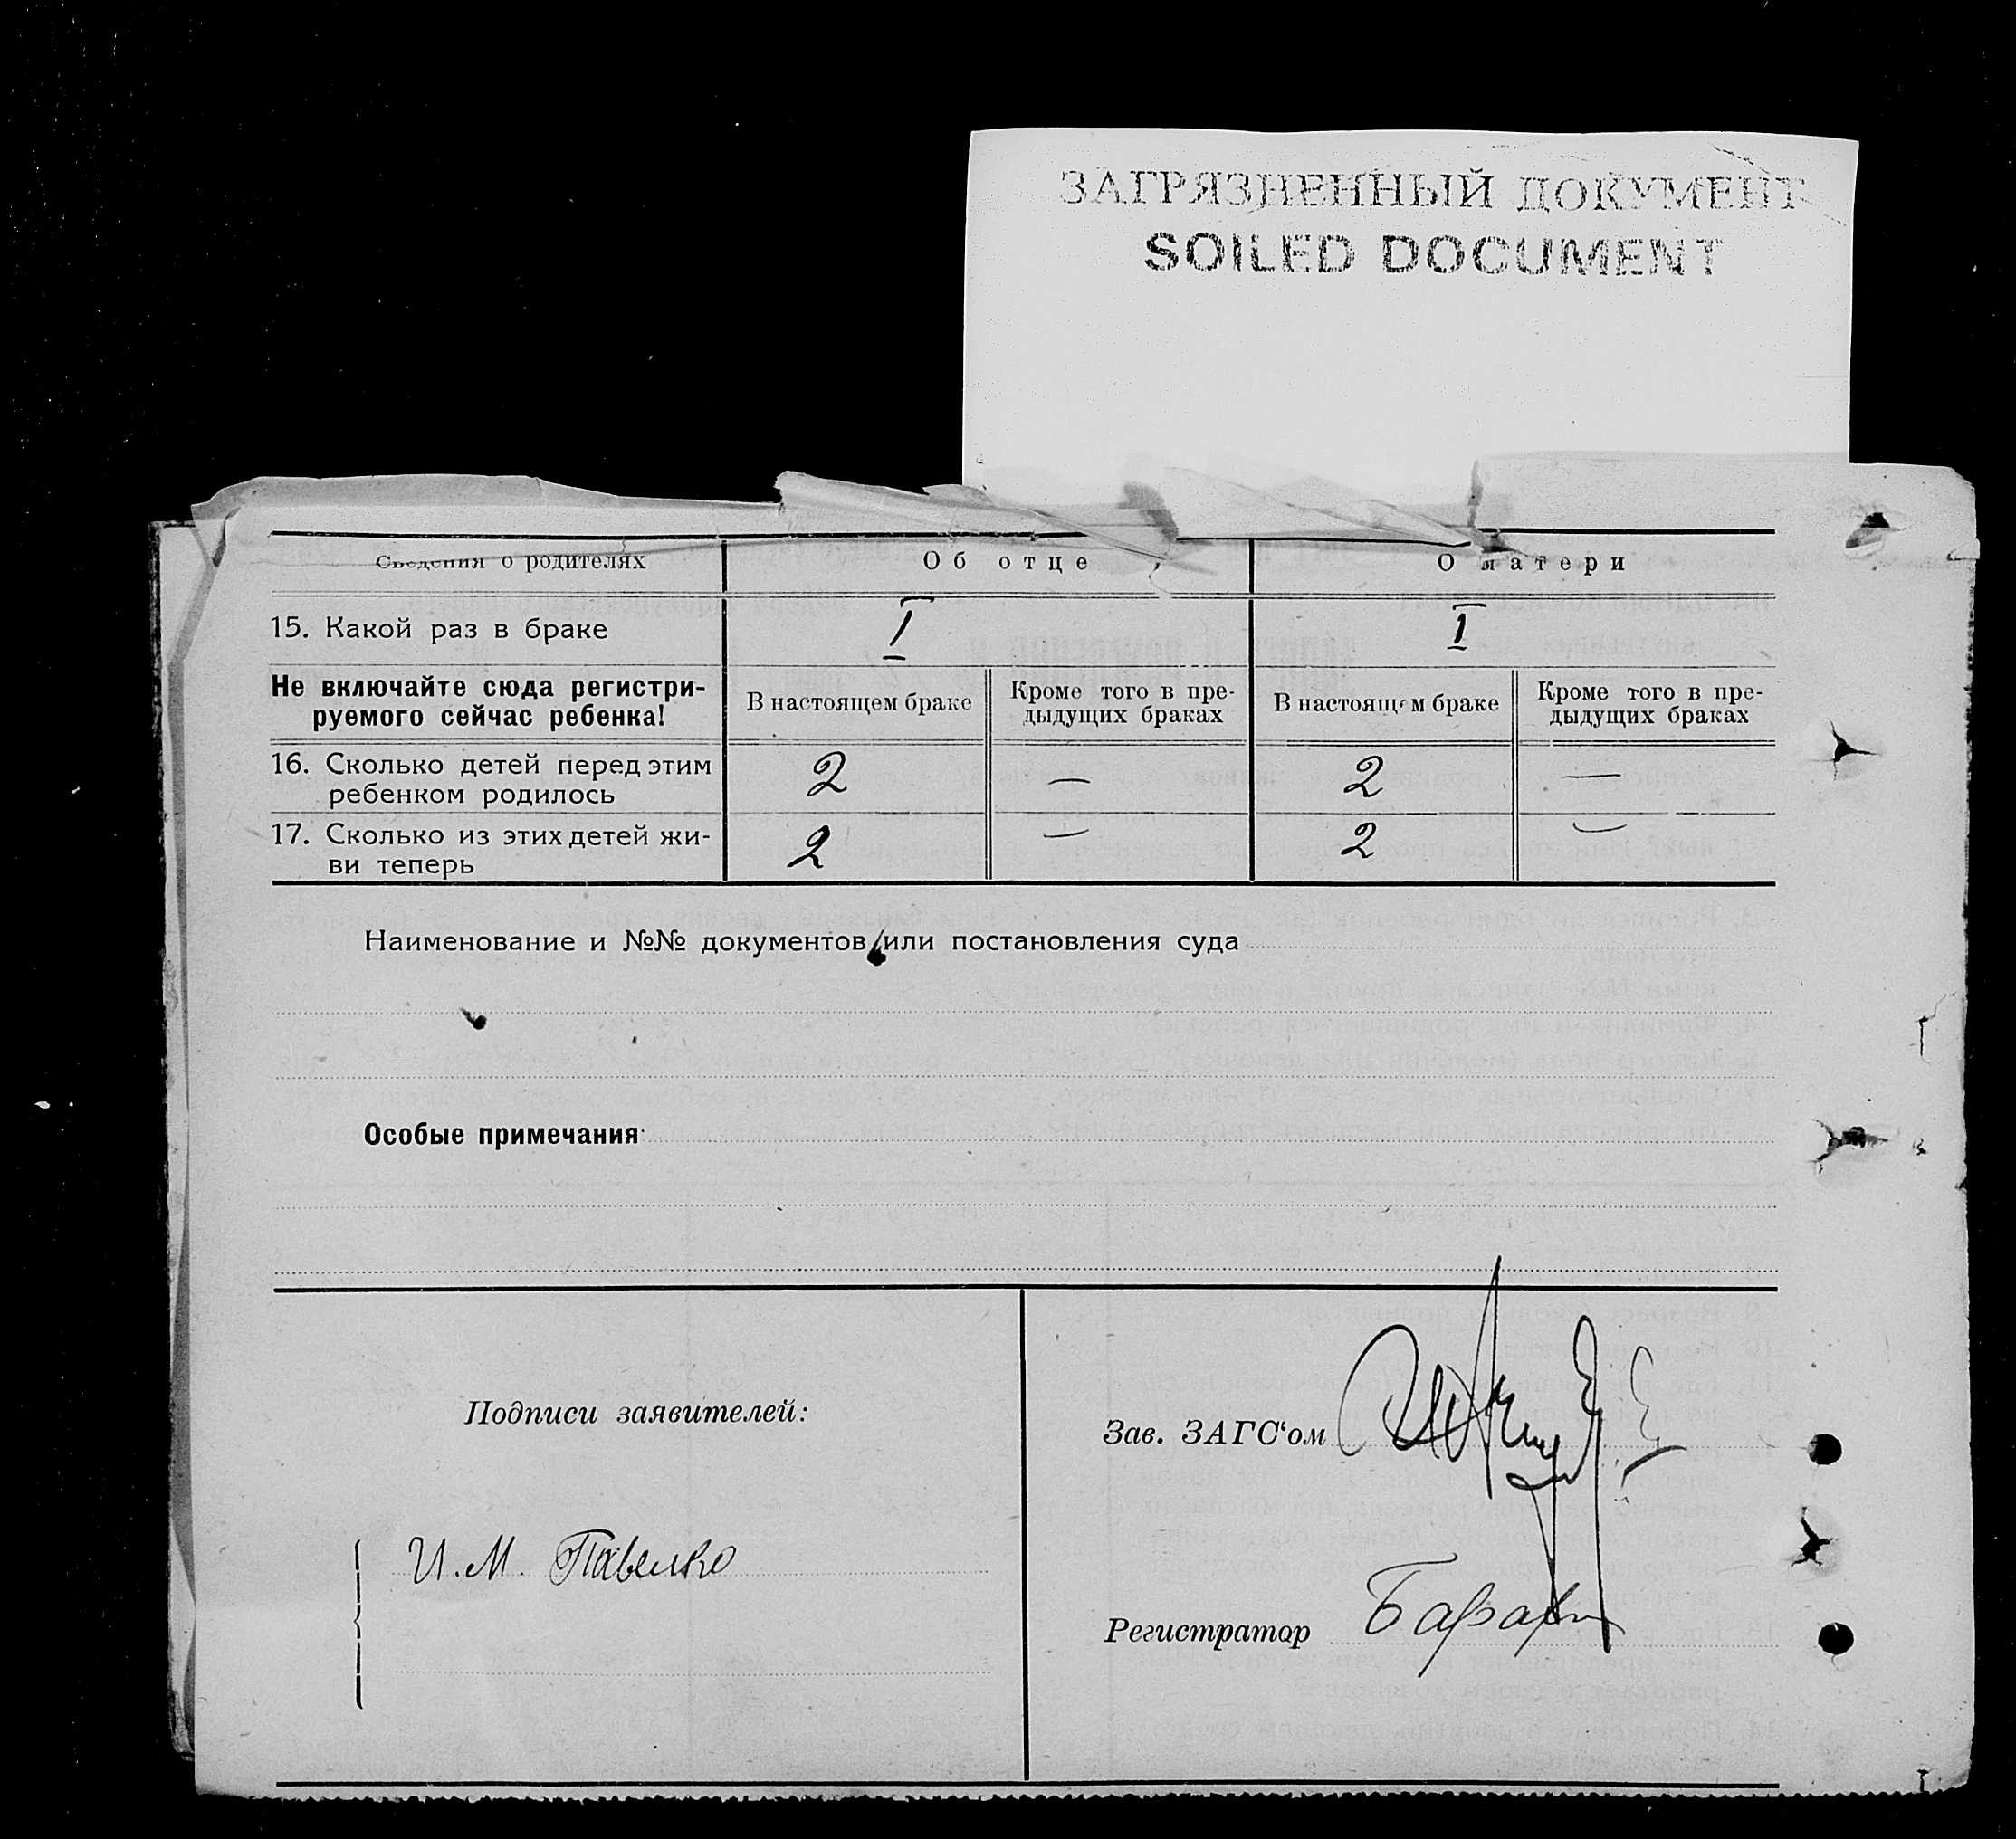 ЗАГРЯЗНЕННЫЙ ДОКУМЕНТ
SOILED DOCUMENT
Сведения о родителях Об отце О матери
15. Какой раз в браке I I
Не включайте сюда регистри-
руемого сейчас ребенка!
В настоящем браке
Кроме того в пре-
дыдущих браках
В настоящем браке
Кроме того в пре-
дыдущих браках
16. Сколько детей перед этим
ребенком родилось 2 — 2 —
17. Сколько из этих детей жи-
ви теперь 2 — 2 —
Наименование и №№ документов или постановления суда
Особые примечания
Подписи заявителей:
Зав. ЗАГС‘ом
И. М. Павелко
Регистратор